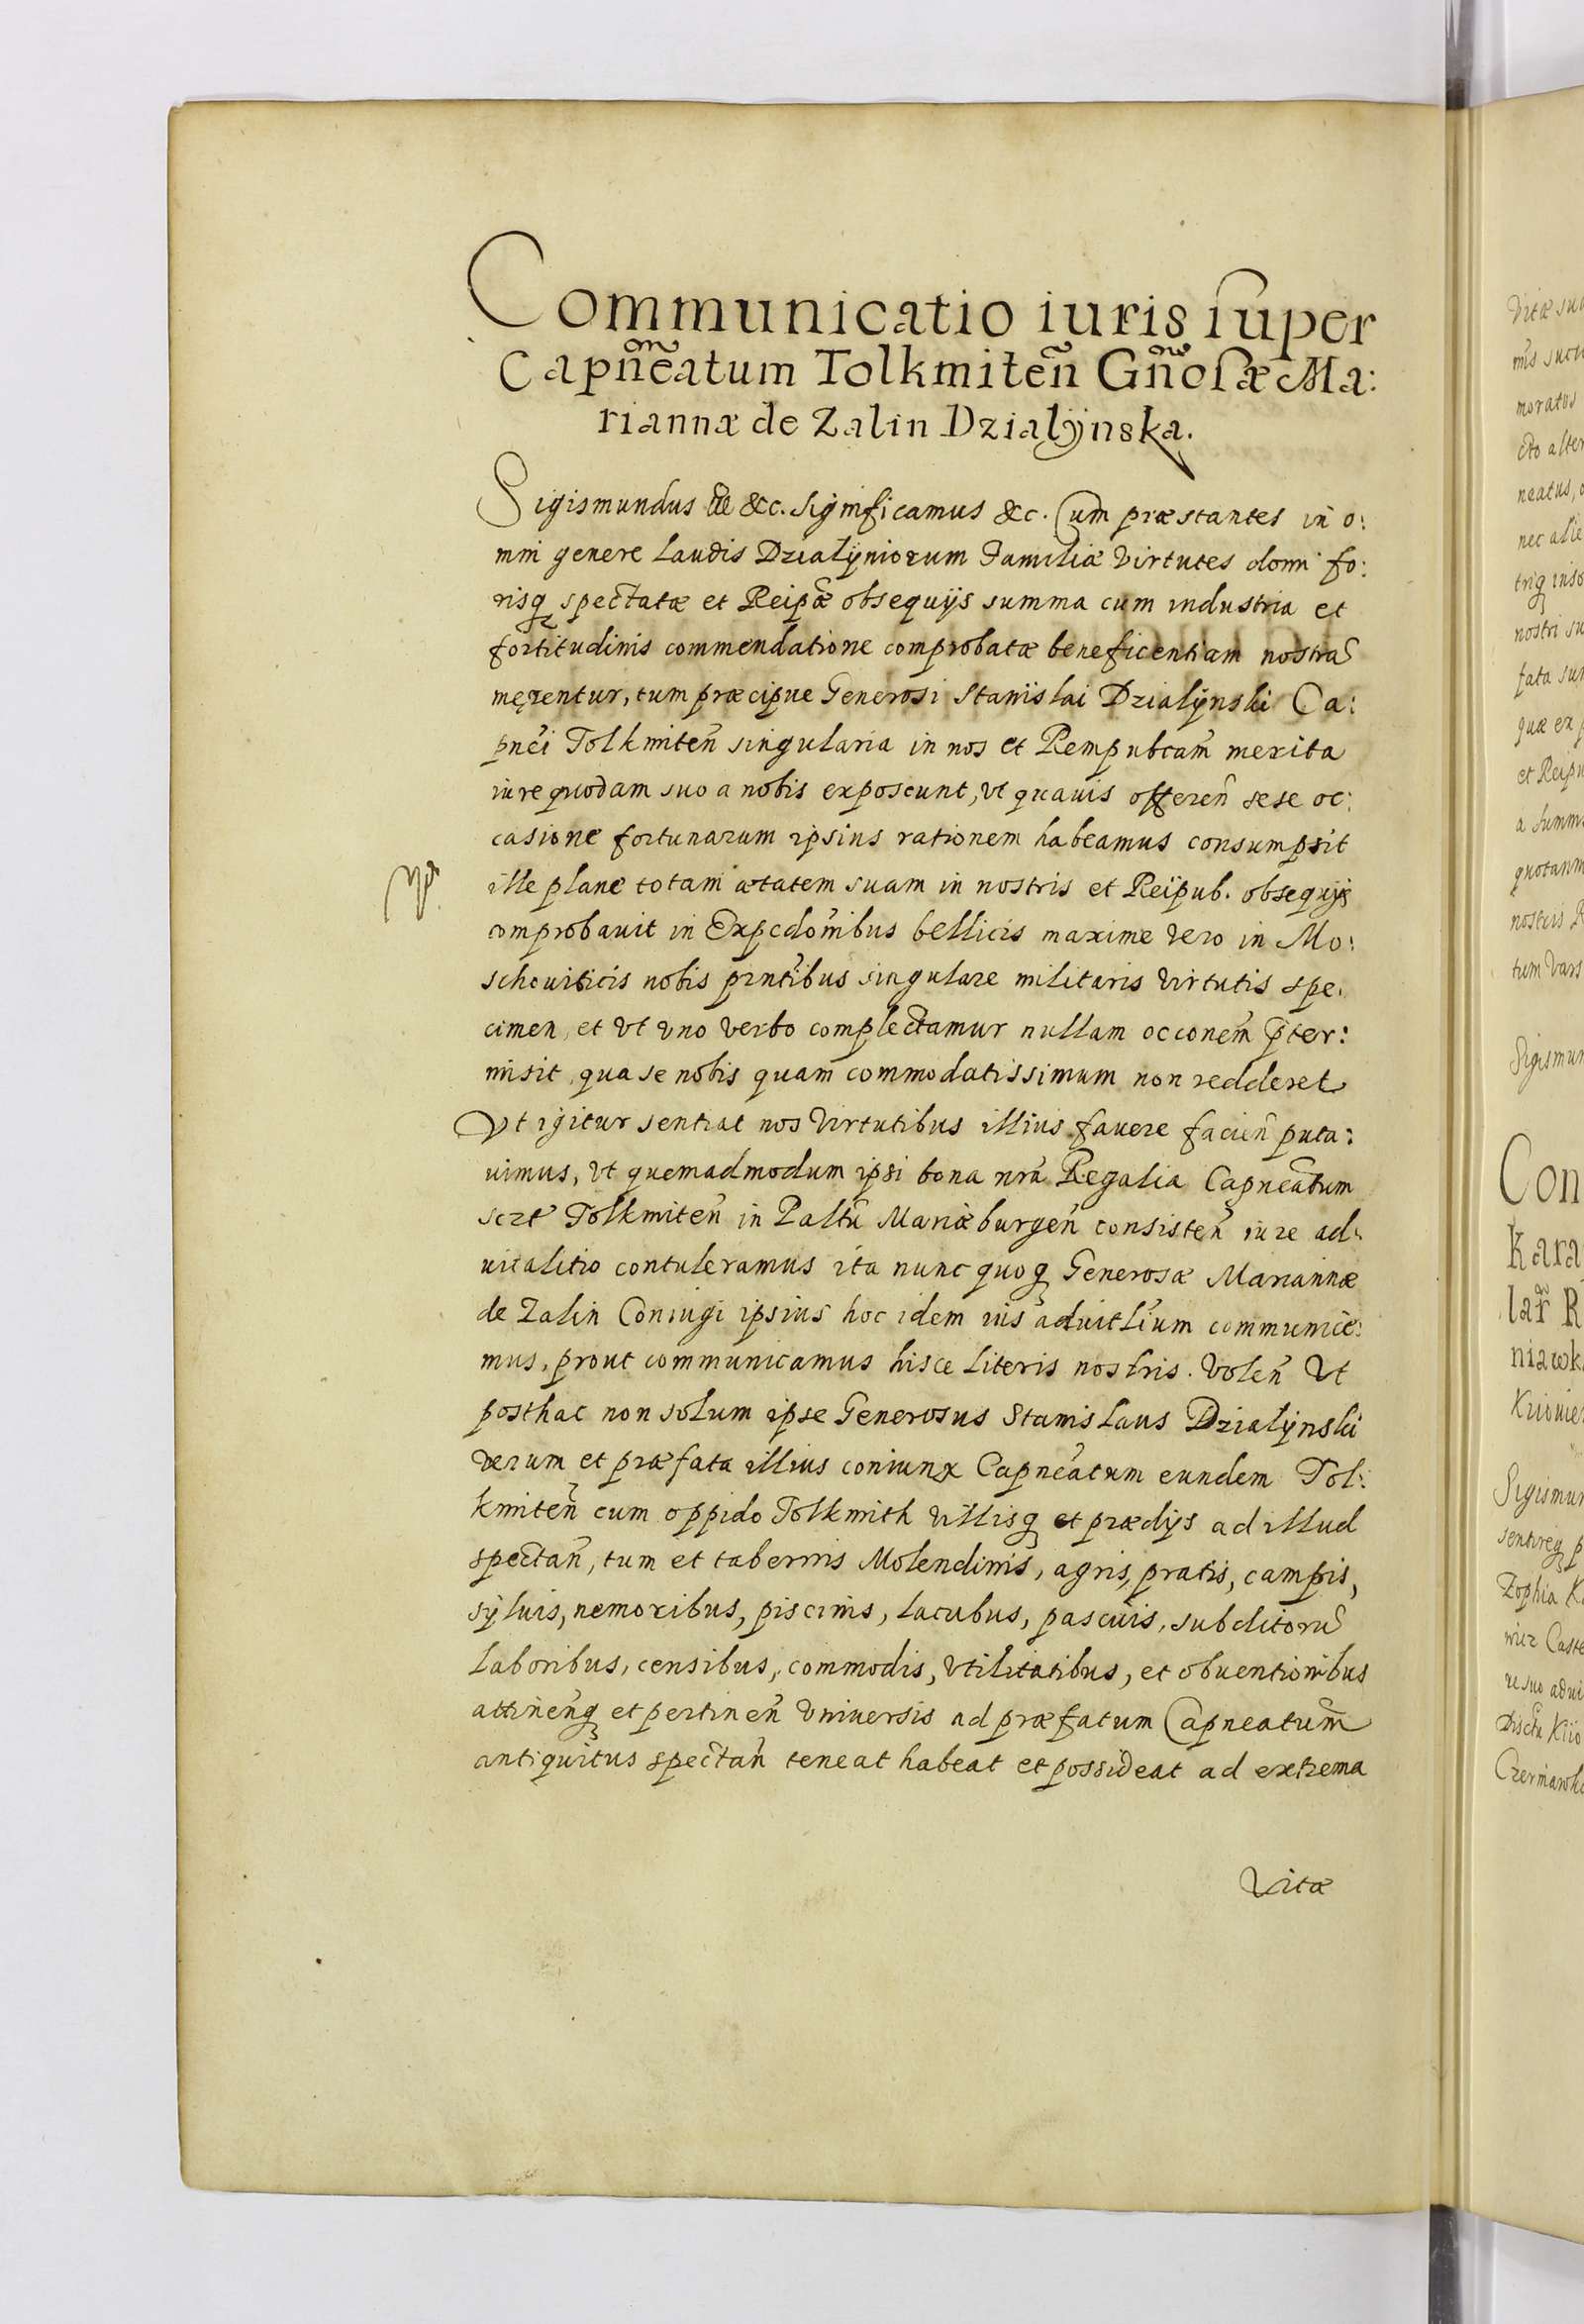 Communicatio iuris super
Capn̄eatum Tolkmiten̄ Gn̄osæ Ma:
riannæ de Zalin Dzialÿnska.
Sigismundus &c. Significamus &c. Cum præstantes in o:
mni genere laudis Dzialÿniorum Familiæ virtutes domi fo:
risq̨ spectatæ et Reipæ obsequijs summa cum industria et
fortitudinis commendatione comprobatæ beneficentiam nostrã
męrentur, tum præcipue Generosi Stanislai Dzialÿnski Ca:
pnei Tolkmiten̄ singularia in nos et Rempubcam̄ merita
iure quodam suo a nobis exposcunt, vt quauis offeren̄ sese oc:
casione fortunarum ipsius rationem habeamus consumpsit
ille plane totam ætatem suam in nostris et Reipub. obsequijs
comprobauit in Expedõnibus bellicis maxime vero in Mo:
schouiticis nobis pr̄ntibus singulare militaris virtutis spe:
cimen, et vt vno verbo complectamur nullam occonem̄ p̄ter:
misit, qua se nobis quam commodatissimum non redderet
Vt igitur sentiat nos virtutibus illius fauere facien̄ puta:
uimus, vt quemadmodum ipsi bona nr̄a Regalia Capneatum̄
sczt Tolkmiten̄ in Paltũ Mariæburgen̄ consisten̄ iure ad:
uitalitio contuleramus ita nunc quoq̨ Generosæ Mariannæ
de Zalin Coniugi ipsius hoc idem ius aduitlĩum communice:
mus, prout communicamus hisce literis nostris. Volen̄ vt
posthac non solum ipse Generosus Stanislaus Dzialÿnski
verum et præfata illius coniunx Capneãtum eundem Tol:
kmiten̄ cum oppido Tolkmith villisq̨ et prædijs ad illud
spectan̄, tum et tabernis Molendinis, agris, pratis, campis,
sÿluis, nemoribus, piscinis, lacubus, pascuis, subditorũ
laboribus, censibus, commodis, vtilitatibus, et obuentionibus
attinen̄q̨ et pertinen̄ vniuersis ad præfatum Capneatum̄
antiquitus spectan̄ teneat habeat et possideat ad extrema
Vitæ
Vitæ
moratus
neatus,
nostri
fata
quæ ex
nostris
tum Vars
Con
Kara
lar̄ R
niawk
Kiiouie
Zophia
Czerniawk